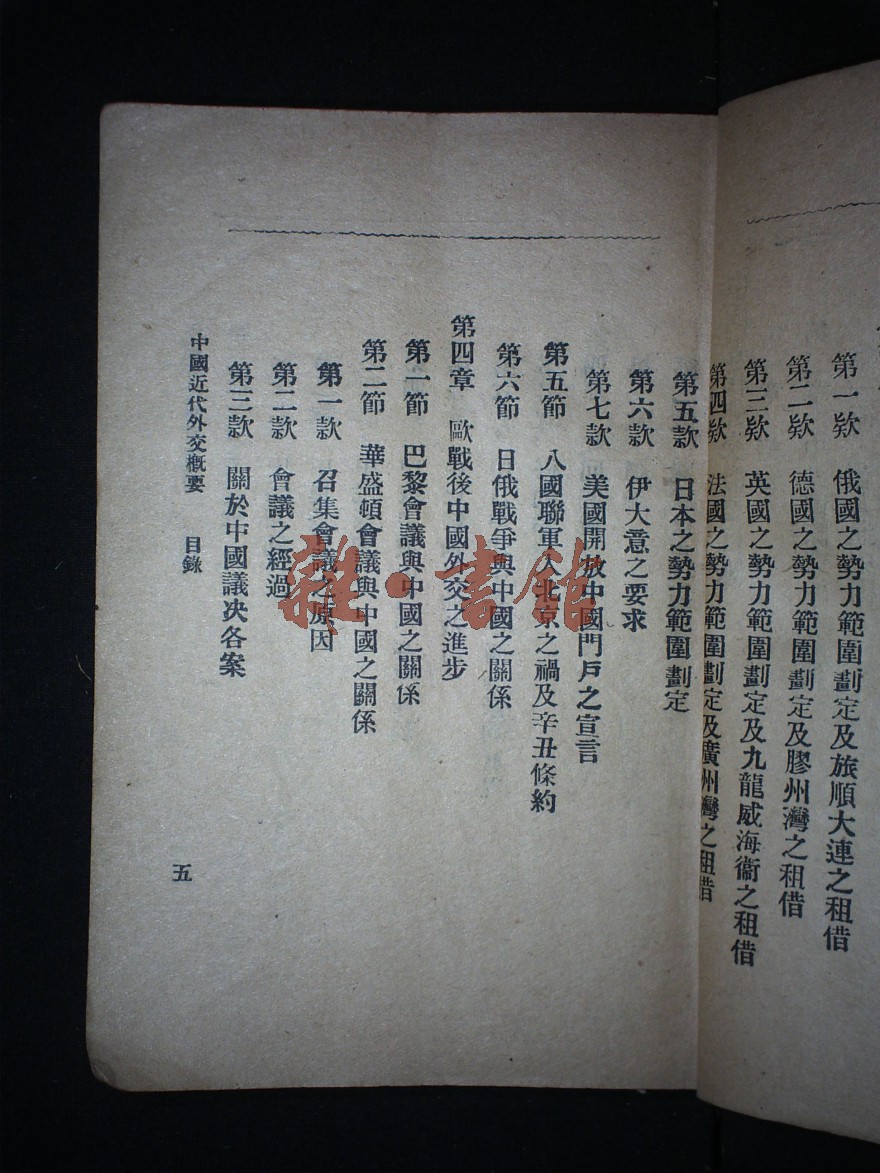 第一欵 俄國之勢力範圍劃定及旅順大連之租借
第二欵 德國之勢力範圍劃定及膠州灣之租借
第三欵 英國之勢力範圍劃定及九龍威海衞之租借
第四欵 法國之勢力範圍劃定及廣州灣之租借
第五款 日本之勢力範圍劃定
第六款 伊大意之要求
第七款 美國開放中國門戶之宣言
第五節 八國聯軍入北京之禍及辛丑條約
第六節 日俄戰爭與中國之關係
第四章 歐戰後中國外交之進步
第一節 巴黎會議與中國之關係
第二節 華盛頓會議與中國之關係
第一款 召集會議之原因
第二款 會議之經過
第三款 關於中國議决各案
中國近代外交概要 目錄
五
雜·書館